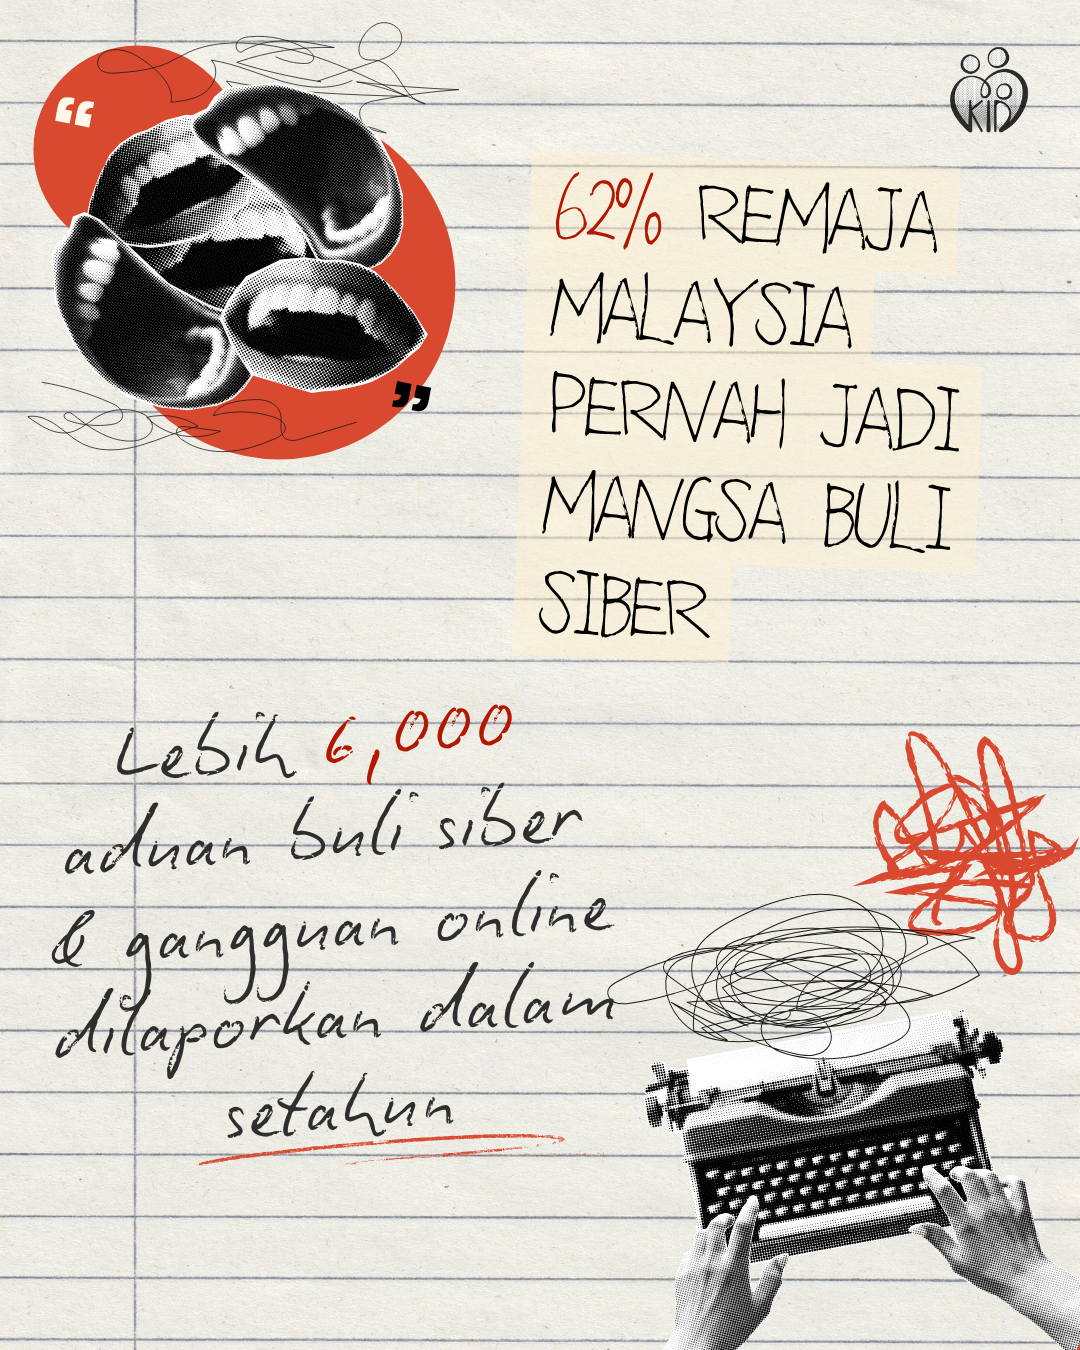 “
KID
62% REMAJA
MALAYSIA
PERNAH JADI
MANGSA BULI
SIBER
”
Lebih 6,000
aduan buli siber
& gangguan online
dilaporkan dalam
setahun